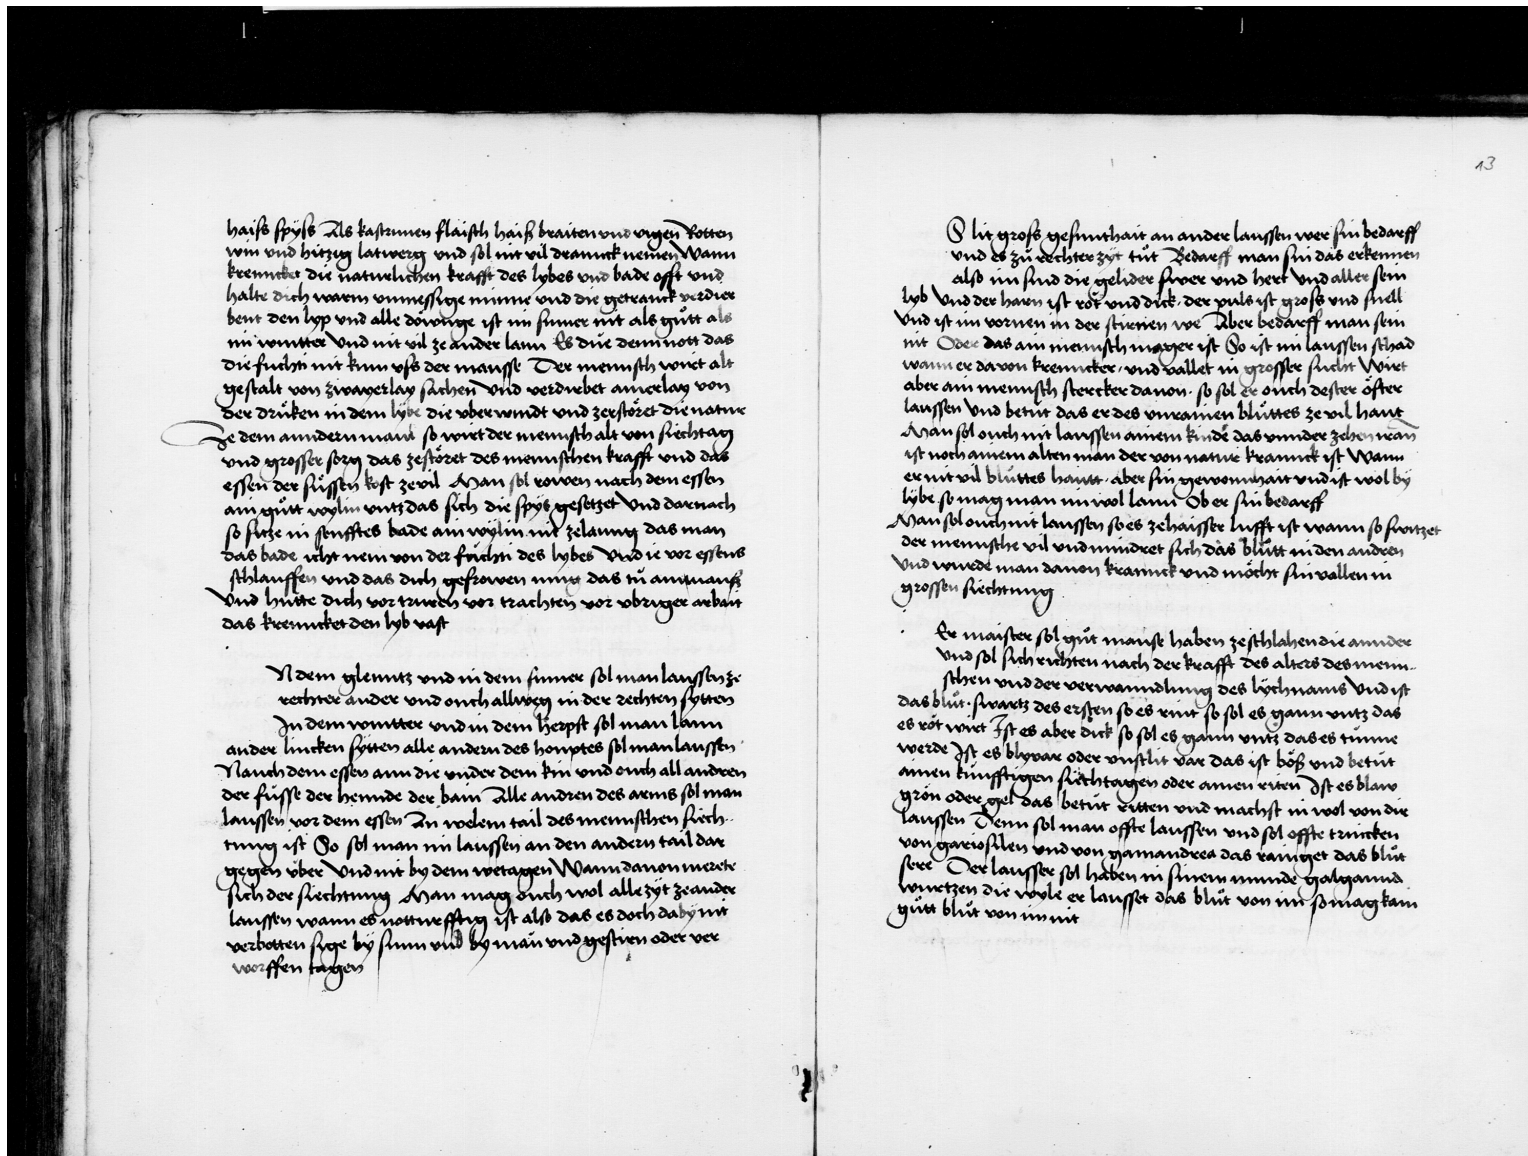 haiss spyss Als kastrunen flaisch haiß braiten und vigen Rotten
win und hitzig latwerg und sol nit vil dranck nemen Wann
krencket die naturlichen krafft des lybes und bade offt und
halte dich warm unmessige minne und die getranck verdier
bent den lyp und alle döwunge ist im sumer nit als gůtt als
im wintter Und nit vil ze ander lann Es due denn nott das
die fuchti nit kum uss der mausse Der mennsch wirt alt
gestalt von zwayerlay sachen Und verdirbet ainerlay von
der drüken in dem lybe die uberwindt und zerstöret die natur
Ze dem anndern maul so wirt der mennsch alt von siechtag
und grosser sorg das zestöret des mennschen krafft und das
essen der süssen kost ze vil Man sol rowen nach dem essen
ain gůtt wylin untz das sich die spys gesetzet Und darnach
so sitze in senfftes bade ain wylin nit ze lanng das man
das bade icht nem von der früchti des lybes Und ie vor essens
schlauffen und das dich gefrowen mug das tů
Und hütte dich vor truren vor trachten vor ubriger arbait
das krencket den lyb vast
N dem glenntz und in dem sumer sol man laussen ze
rechter ander und ouch allweg in der rechten sytten
In dem wintter und in dem herpst sol man lann
ander lincken sytten alle andern des houptes sol man laussen
Nauch dem essen ann die under dem kin und ouch all andren
der füsse der hennde der bain Alle andren des arms sol man
laussen vor dem essen An welem tail des mennschen siech
tung ist So sol man im laussen an den andern tail dar
gegen über Und nit by dem wetagen Wann davon merete
sich der siechtung Man mag ouch wol alle zyt ze ander
laussen wann es notturfftig ist also das es doch daby nit
verbotten sige by sunn und by man und gestirn oder ver
worffen tagen
13
S lit gross gesunthait an ander laussen wer sin bedarff
und es zů rechter zyt tůt Bedarff man sin das erkennen
also im sind die gelider swer und hert Und aller sein
lyb Und der harn ist rot und dick der puls ist gross und snell
Und ist im vornen in der stirnen we Aber bedarff man sein
nit Oder das ain mennsch mager ist So ist im laussen schad
wann er davon krenncker und vallet in grosser sucht Wirt
aber ain mennsch stercker davon so sol er ouch dester öfter
laussen Und betüt das er des unrainen blůttes ze vil hautt
Man sol ouch nit laussen ainem kinde das unnder zehen iran
ist noch ainem alten man der von natur kranck ist Wann
er nit vil blůttes hautt aber sin gewonnhait und ist wol by
lybe so mag man im wol lann Ob er sin bedarff
Man sol ouch nit laussen so es ze haisser lufft ist wann so switzet
der mennsche vil und mindret sich das blůtt in den andren
Und wurde man davon kranck und möcht sin vallen in
grossen siechtung
Er maister sol gůt maust haben ze schlahen die annder
Und sol sich richten nach der krafft des alters des menn
schen und der verwanndlung des lychnams Und ist
das blůt swartz des ersten so es rint so sol es gann untz das
es rot wirt Ist es aber dick so sol es gann untz das es tünne
werde Ist es blyvar oder unslit var das ist böß und betüt
ainen künfftigen siechtagen oder ainen riten Ist es blaw
grön oder gel das betüt ritten und machst in wol von die
laussen Denn sol man offte laussen und sol offte trincken
von gariofilen und von gamandrea das rainget das blůt
sere Der lausser sol haben in sinem munde galgannd
wurtzen die wyle er lausset das blůt von im so mag kain
gůtt blůt von im nit